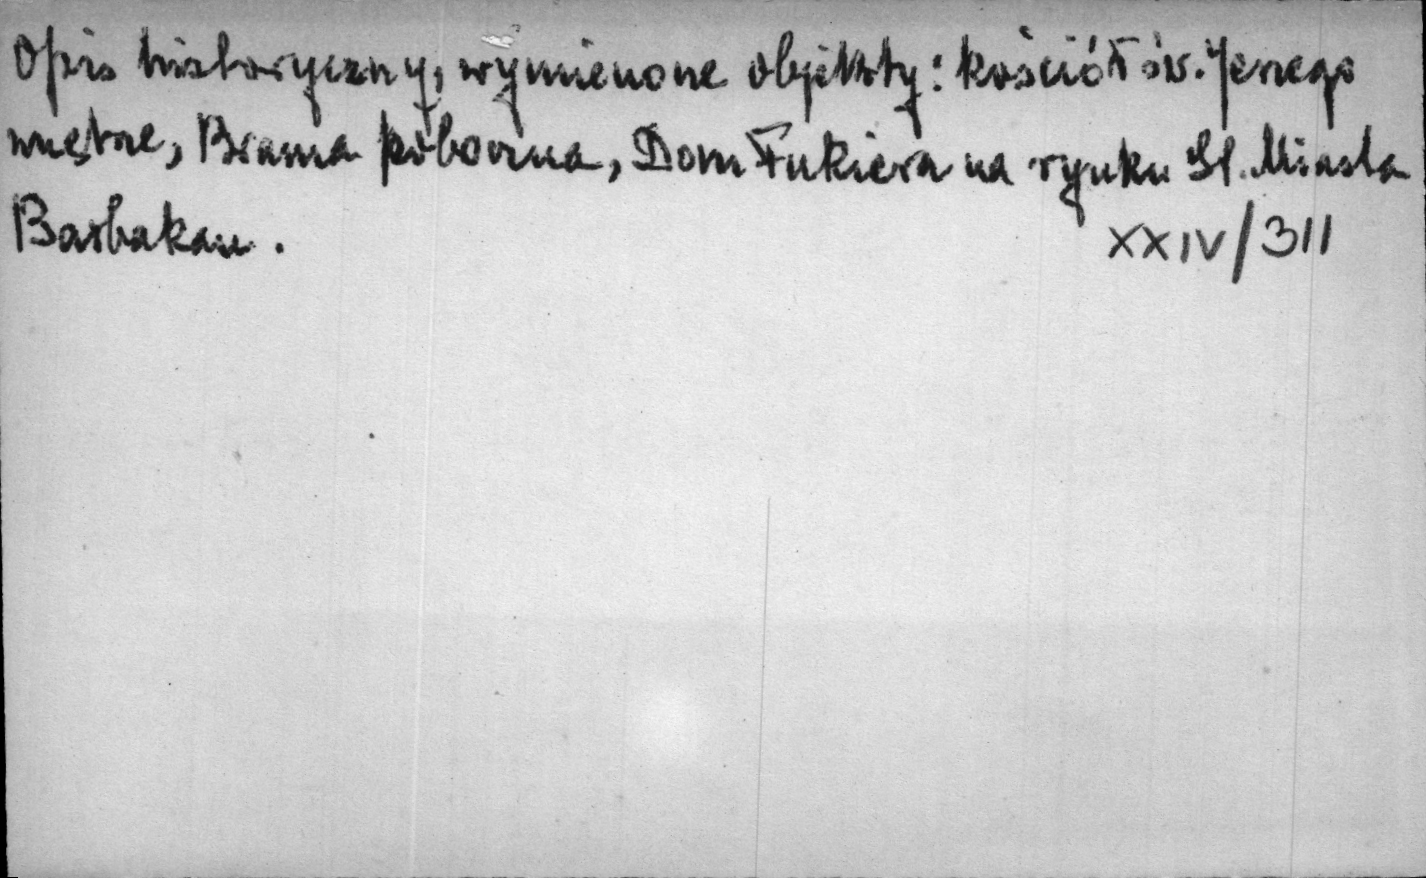 Opis historyczny, wymienone objekty: kościół św. Jerzego
wnętrze, Brama poboczna, Dom Fukiera na rynku St. Miasta
Barbakan.
XXIV/311